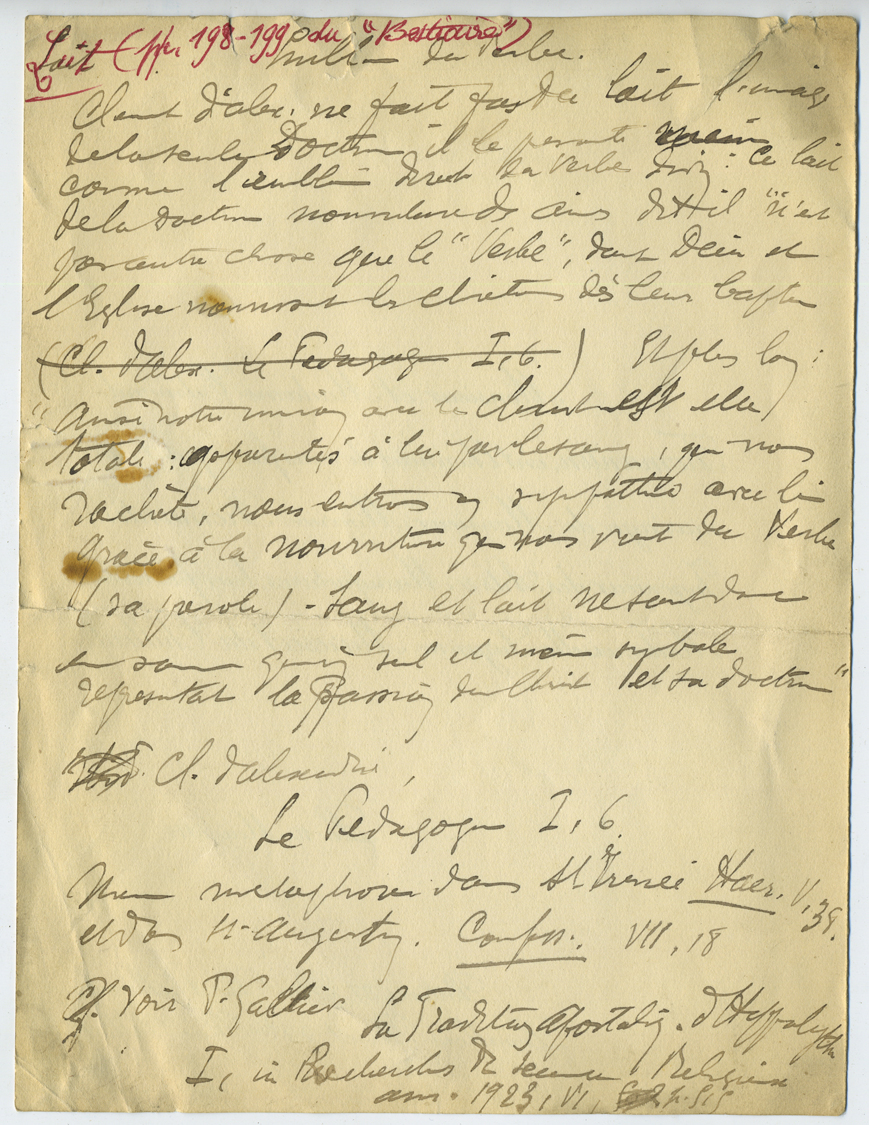 Lait (pp. 198-199 du "Bestiaire")
Emblème du Verbe.
Clement d'Alex. ne fait pas du lait l'image
de la seule Doctrine, il le présente
comme l'emblème direct du Verbe divin : Ce lait
de la Doctrine nourriture des âmes dit-il "n'est
pas autre chose que le "Verbe", dont Dieu et
l'Eglise nourrissent les chrétiens dès leur baptême
(Cl. d'Alex. Le Pédagogue I, 6.) Et plus loin :
"Ainsi notre union avec le Christ est elle
totale : apparentés à lui par le sang, qui nous
rachète, nous entrons en sympathie avec lui
grâce à la nourriture qui nous vient du Verbe
(sa parole) - Sang et lait ne sont donc
en somme qu'un seul et même symbole
représentant la Passion du Christ et sa doctrine"
Cl. d'Alexandrie,
Le Pédagogue I, 6.
Même métaphore dans St Irénée Haer. V, 38.
et dans St Augustin. Confess. VII, 18
Cf. Voir P. Galtier La Tradition Apostoliq. d'Hippolyte
I, in Recherches de science Religieuse
ann. 1923, VI, p. 515